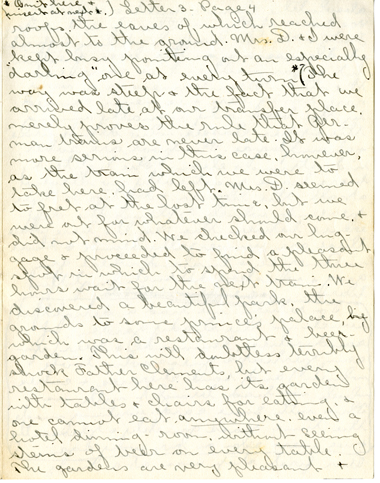 * Omit here, &
insert at next *.) Letter 3. Page 4
roofs, the eaves of which reached
almost to the ground. Mrs. D. & I were
kept busy pointing out an especially
"darling" one at every turn. *(The
way was steep & the fact that we
arrived late at our transfer place
merely proves the rule that Ger-
man trains are never late. It was
more serious in this case, however,
as the train which we were to
take here had left. Mrs. D. seemed
to fret at the lost time, but we
were out for whatever should come, &
did not mind. We checked our lug-
gage & proceeded to find a pleasant
spot in which to spend the three
hours wait for the next train. We
discovered a beautiful park, the
grounds to some prince's palace, by
which was a restaurant & beer
garden. This will doubtless terribly
shock Father Clement, but every
restaurant here has its garden
with tables & chairs for eating, &
one cannot eat anywhere, even a
hotel dining-room, without seeing
steins of beer on every table.
The gardens are very pleasant &